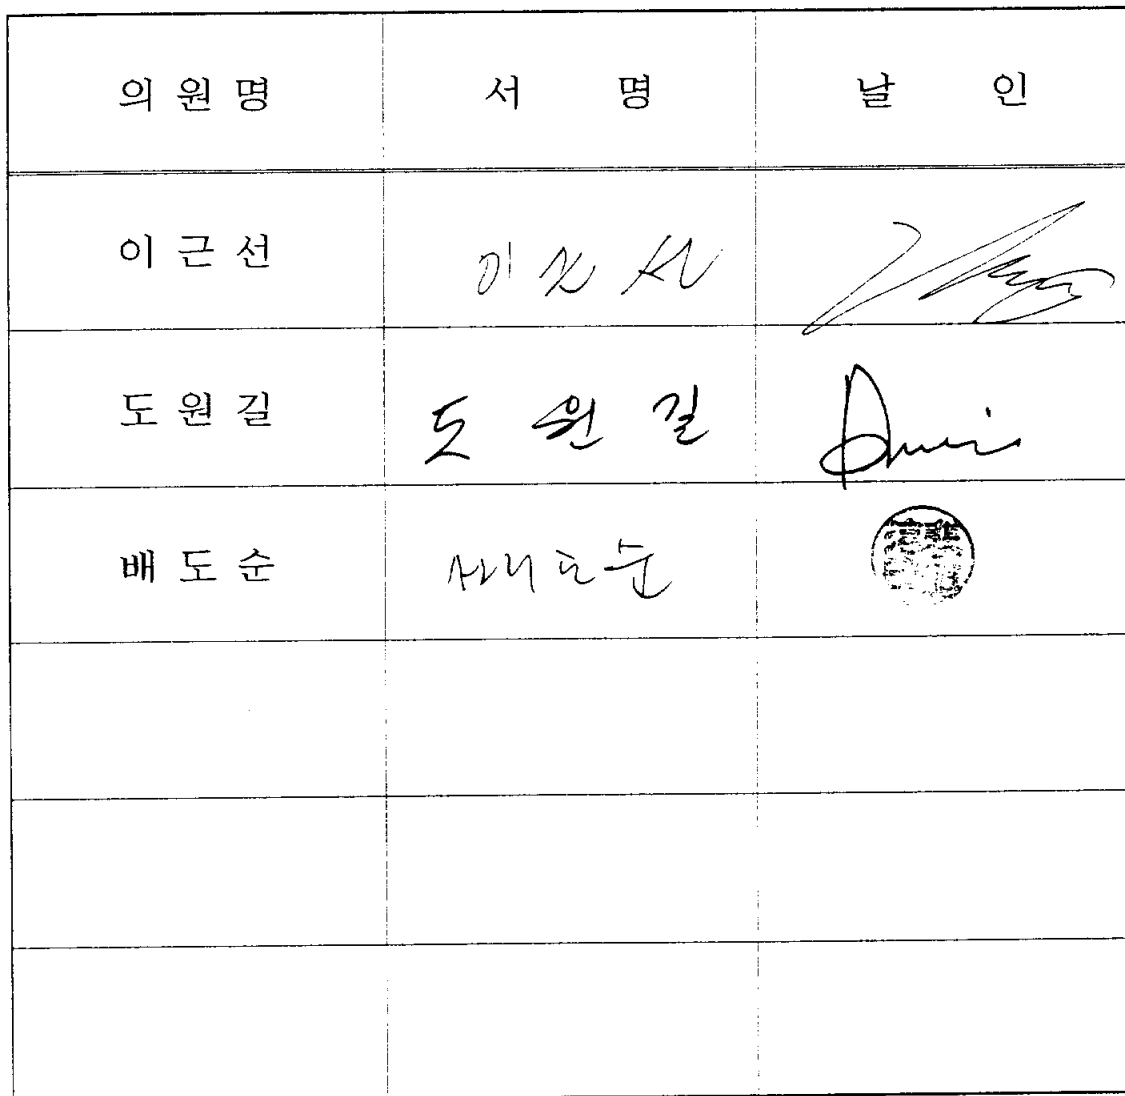 의 원 명 서 명 날 인
이 근 선 이 근 선
도 원 길 도 원 길
배 도 순 배 도 순